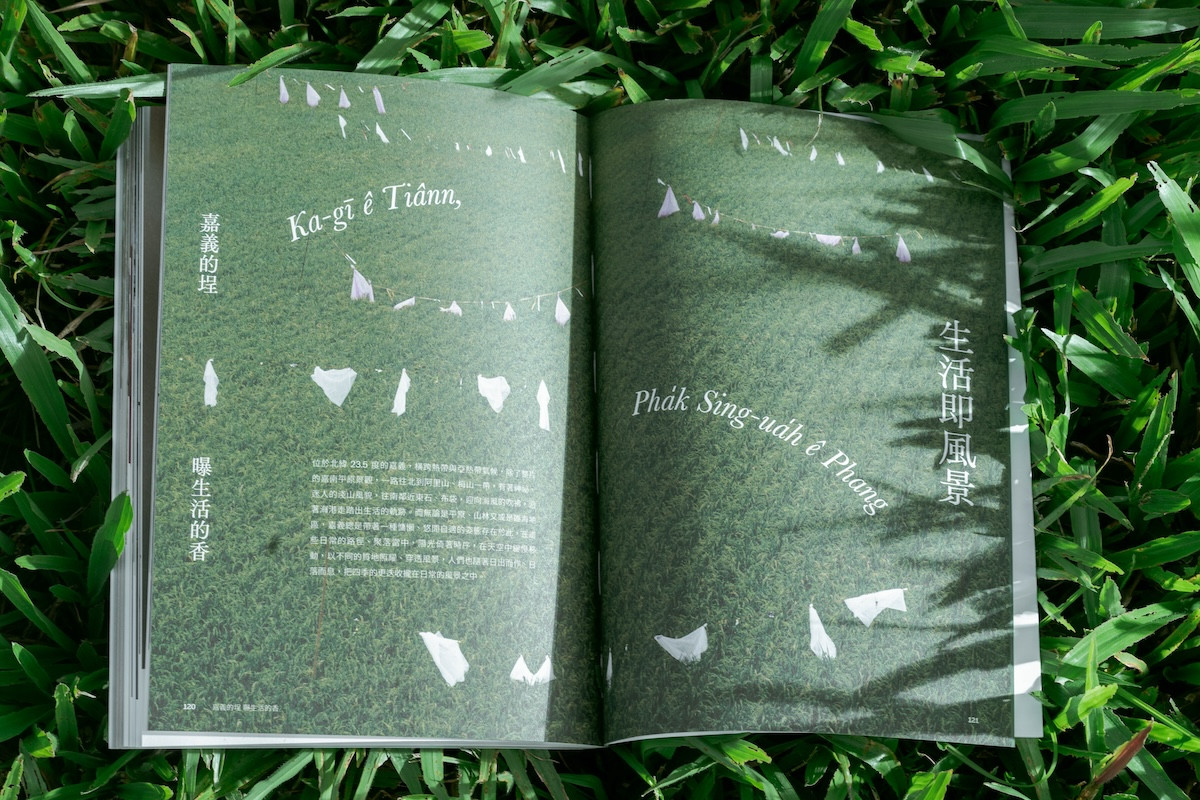 Ka-gī ê Tiânn,
嘉義的埕
曝生活的香
位於北緯 23.5 度的嘉義,橫跨熱帶與亞熱帶氣候,除了
的嘉南平原景觀,一路往北到阿里山、梅山一帶,有著
迷人的淺山風貌,往南鄰近東石、布袋,迎向海風的吹拂,
著海港走踏出生活的軌跡。而無論是平原、山林又或是臨海地
區,嘉義總是帶著一種慵懶、悠閒自適的姿態存在於此。在這
些日常的路徑、聚落當中,陽光倚著時序,在天空中緩慢移
動,以不同的質地照耀、穿透風景,人們也隨著日出而作、日
落而息,把四季的更迭收攏在日常的風景之中。
120 嘉義的埕 曝生活的香
生活即風景
Pha̍k Sing-ua̍h ê Phang
121